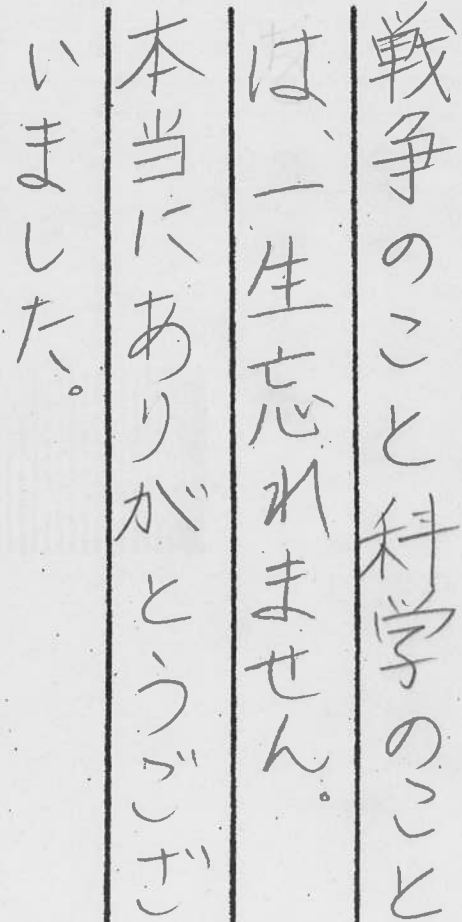 戦争のこと科学のこと
は、一生忘れません。
本当にありがとうござ
いました。